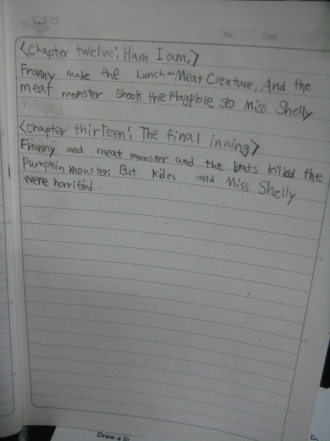 No. Date
<chapter twelve: Ham I am,>
Franny made the Lunch-Meat Creature, And the
meat monster shook the flagplole so Miss Shelly
<chapter thirteen: The final inning>
Franny and meat monster and the bats killed the
Pumpkin monster. But kides and Miss Shelly
were horrified
Draw a